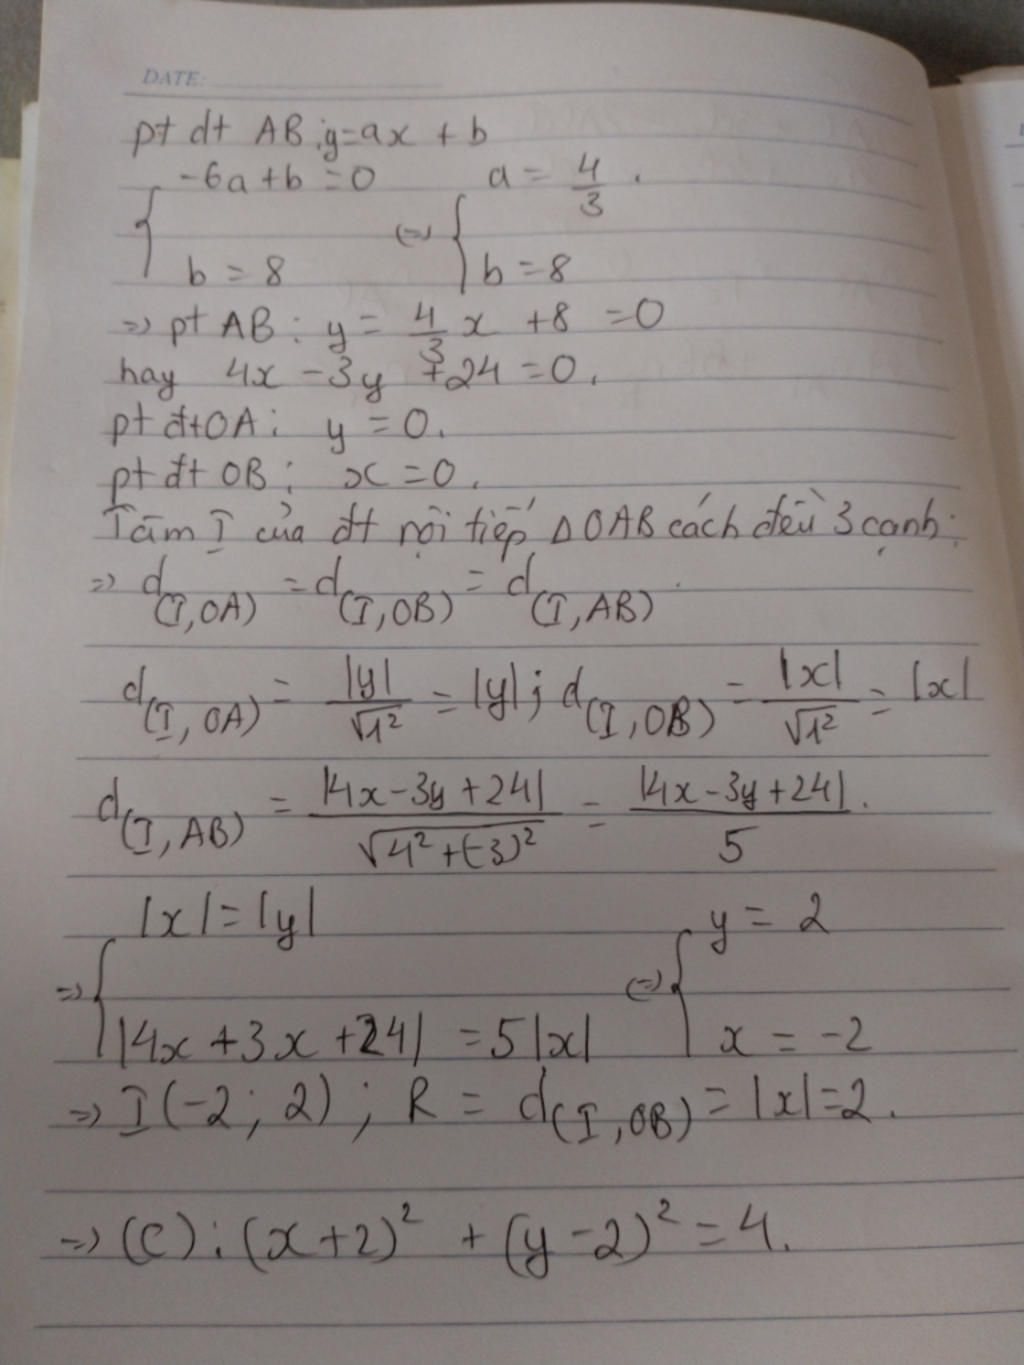 DATE:
pt dt AB: y=ax + b
{ -6a+b=0 a = 4/3 .
b = 8 <=> { b = 8
=> pt AB: y = 4/3 x +8 =0
hay 4x - 3y + 24 = 0.
pt đt OA: y = 0.
pt đt OB: x = 0.
Tâm I của đt nội tiếp Δ OAB cách đều 3 cạnh:
=> d(I,OA) = d(I,OB) = d(I,AB)
d(I,OA) = |y|/√1² = |y|; d(I,OB) = |x|/√1² = |x|
d(I,AB) = |4x-3y+24|/√4²+(-3)² = |4x-3y+24|/5.
=> { |x|=|y| <=> { y = 2
|4x+3x+24| = 5|x| x = -2
=> I(-2; 2); R = d(I,OB) = |x|=2.
=> (C): (x+2)² + (y-2)² = 4.